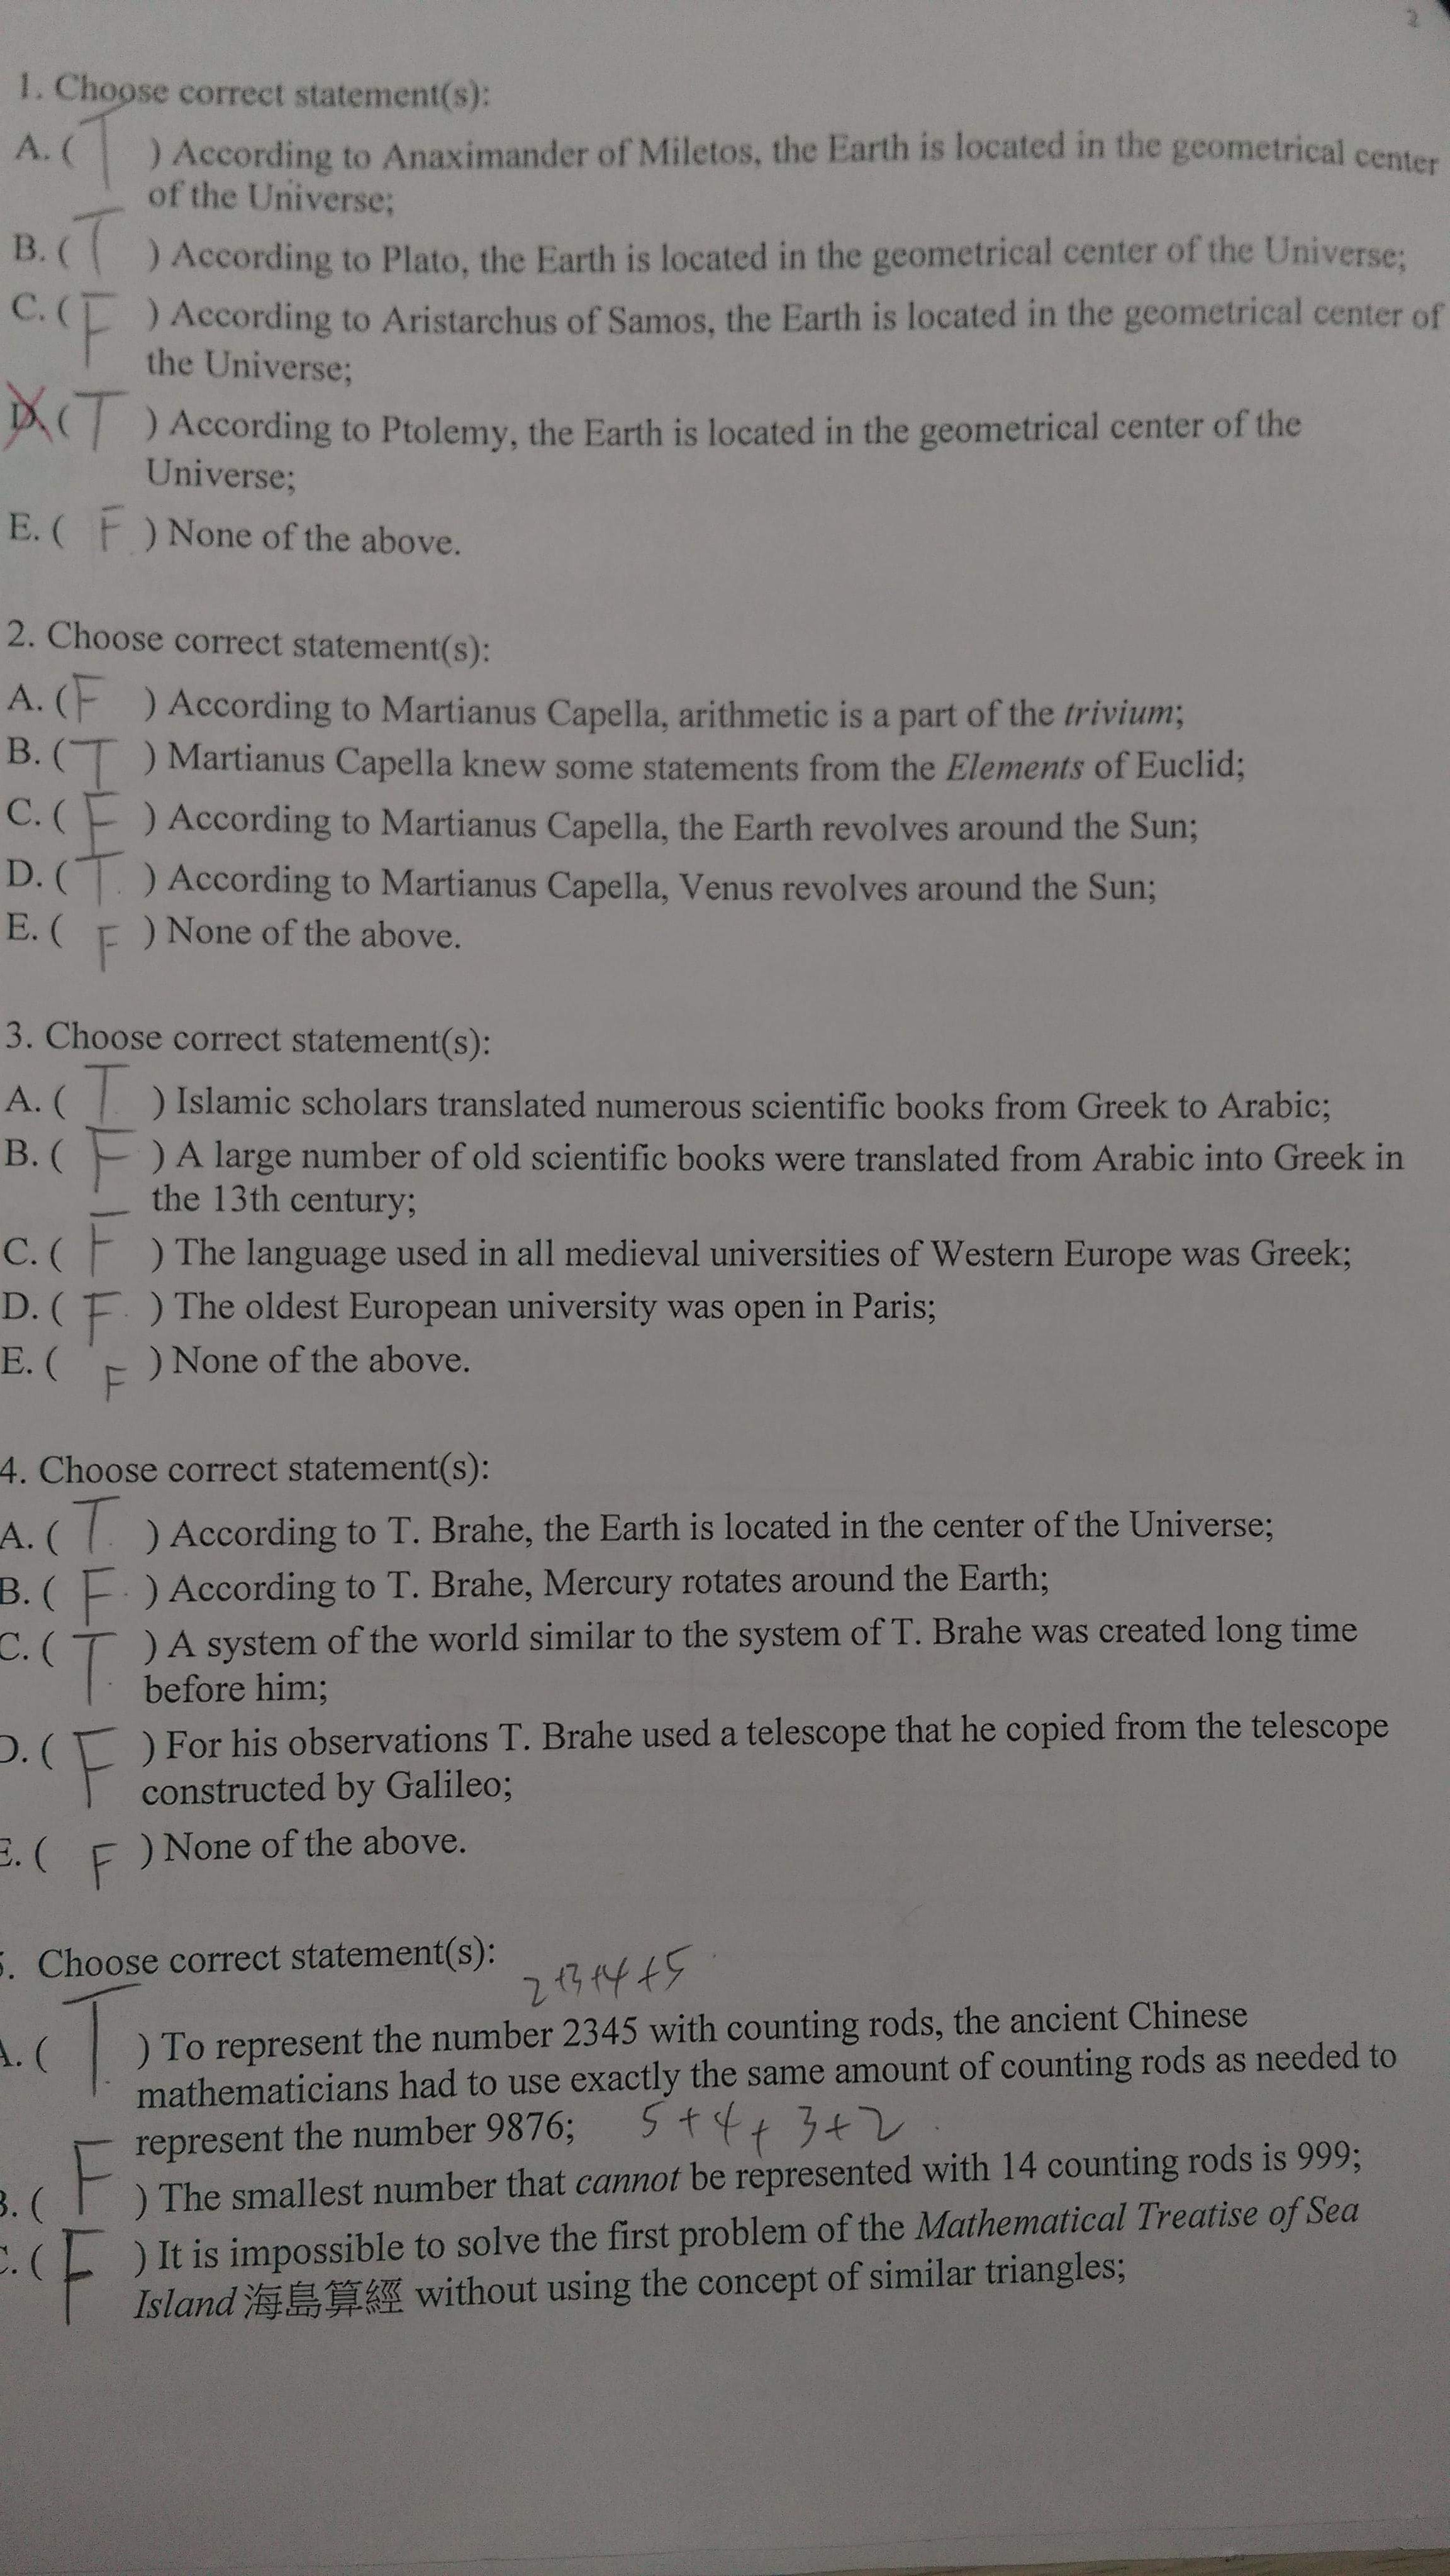 2
1. Choose correct statement(s):
A. ( T ) According to Anaximander of Miletos, the Earth is located in the geometrical center
of the Universe;
B. ( T ) According to Plato, the Earth is located in the geometrical center of the Universe;
C. ( F ) According to Aristarchus of Samos, the Earth is located in the geometrical center of
the Universe;
D. ( T ) According to Ptolemy, the Earth is located in the geometrical center of the
Universe;
E. ( F ) None of the above.
2. Choose correct statement(s):
A. ( F ) According to Martianus Capella, arithmetic is a part of the trivium;
B. ( T ) Martianus Capella knew some statements from the Elements of Euclid;
C. ( F ) According to Martianus Capella, the Earth revolves around the Sun;
D. ( T ) According to Martianus Capella, Venus revolves around the Sun;
E. ( F ) None of the above.
3. Choose correct statement(s):
A. ( T ) Islamic scholars translated numerous scientific books from Greek to Arabic;
B. ( F ) A large number of old scientific books were translated from Arabic into Greek in
the 13th century;
C. ( F ) The language used in all medieval universities of Western Europe was Greek;
D. ( F ) The oldest European university was open in Paris;
E. ( F ) None of the above.
4. Choose correct statement(s):
A. ( T ) According to T. Brahe, the Earth is located in the center of the Universe;
B. ( F ) According to T. Brahe, Mercury rotates around the Earth;
C. ( T ) A system of the world similar to the system of T. Brahe was created long time
before him;
D. ( F ) For his observations T. Brahe used a telescope that he copied from the telescope
constructed by Galileo;
E. ( F ) None of the above.
5. Choose correct statement(s): 2+3+4+5
A. ( T ) To represent the number 2345 with counting rods, the ancient Chinese
mathematicians had to use exactly the same amount of counting rods as needed to
represent the number 9876; 5+4+3+2
B. ( F ) The smallest number that cannot be represented with 14 counting rods is 999;
C. ( F ) It is impossible to solve the first problem of the Mathematical Treatise of Sea
Island 海島算經 without using the concept of similar triangles;